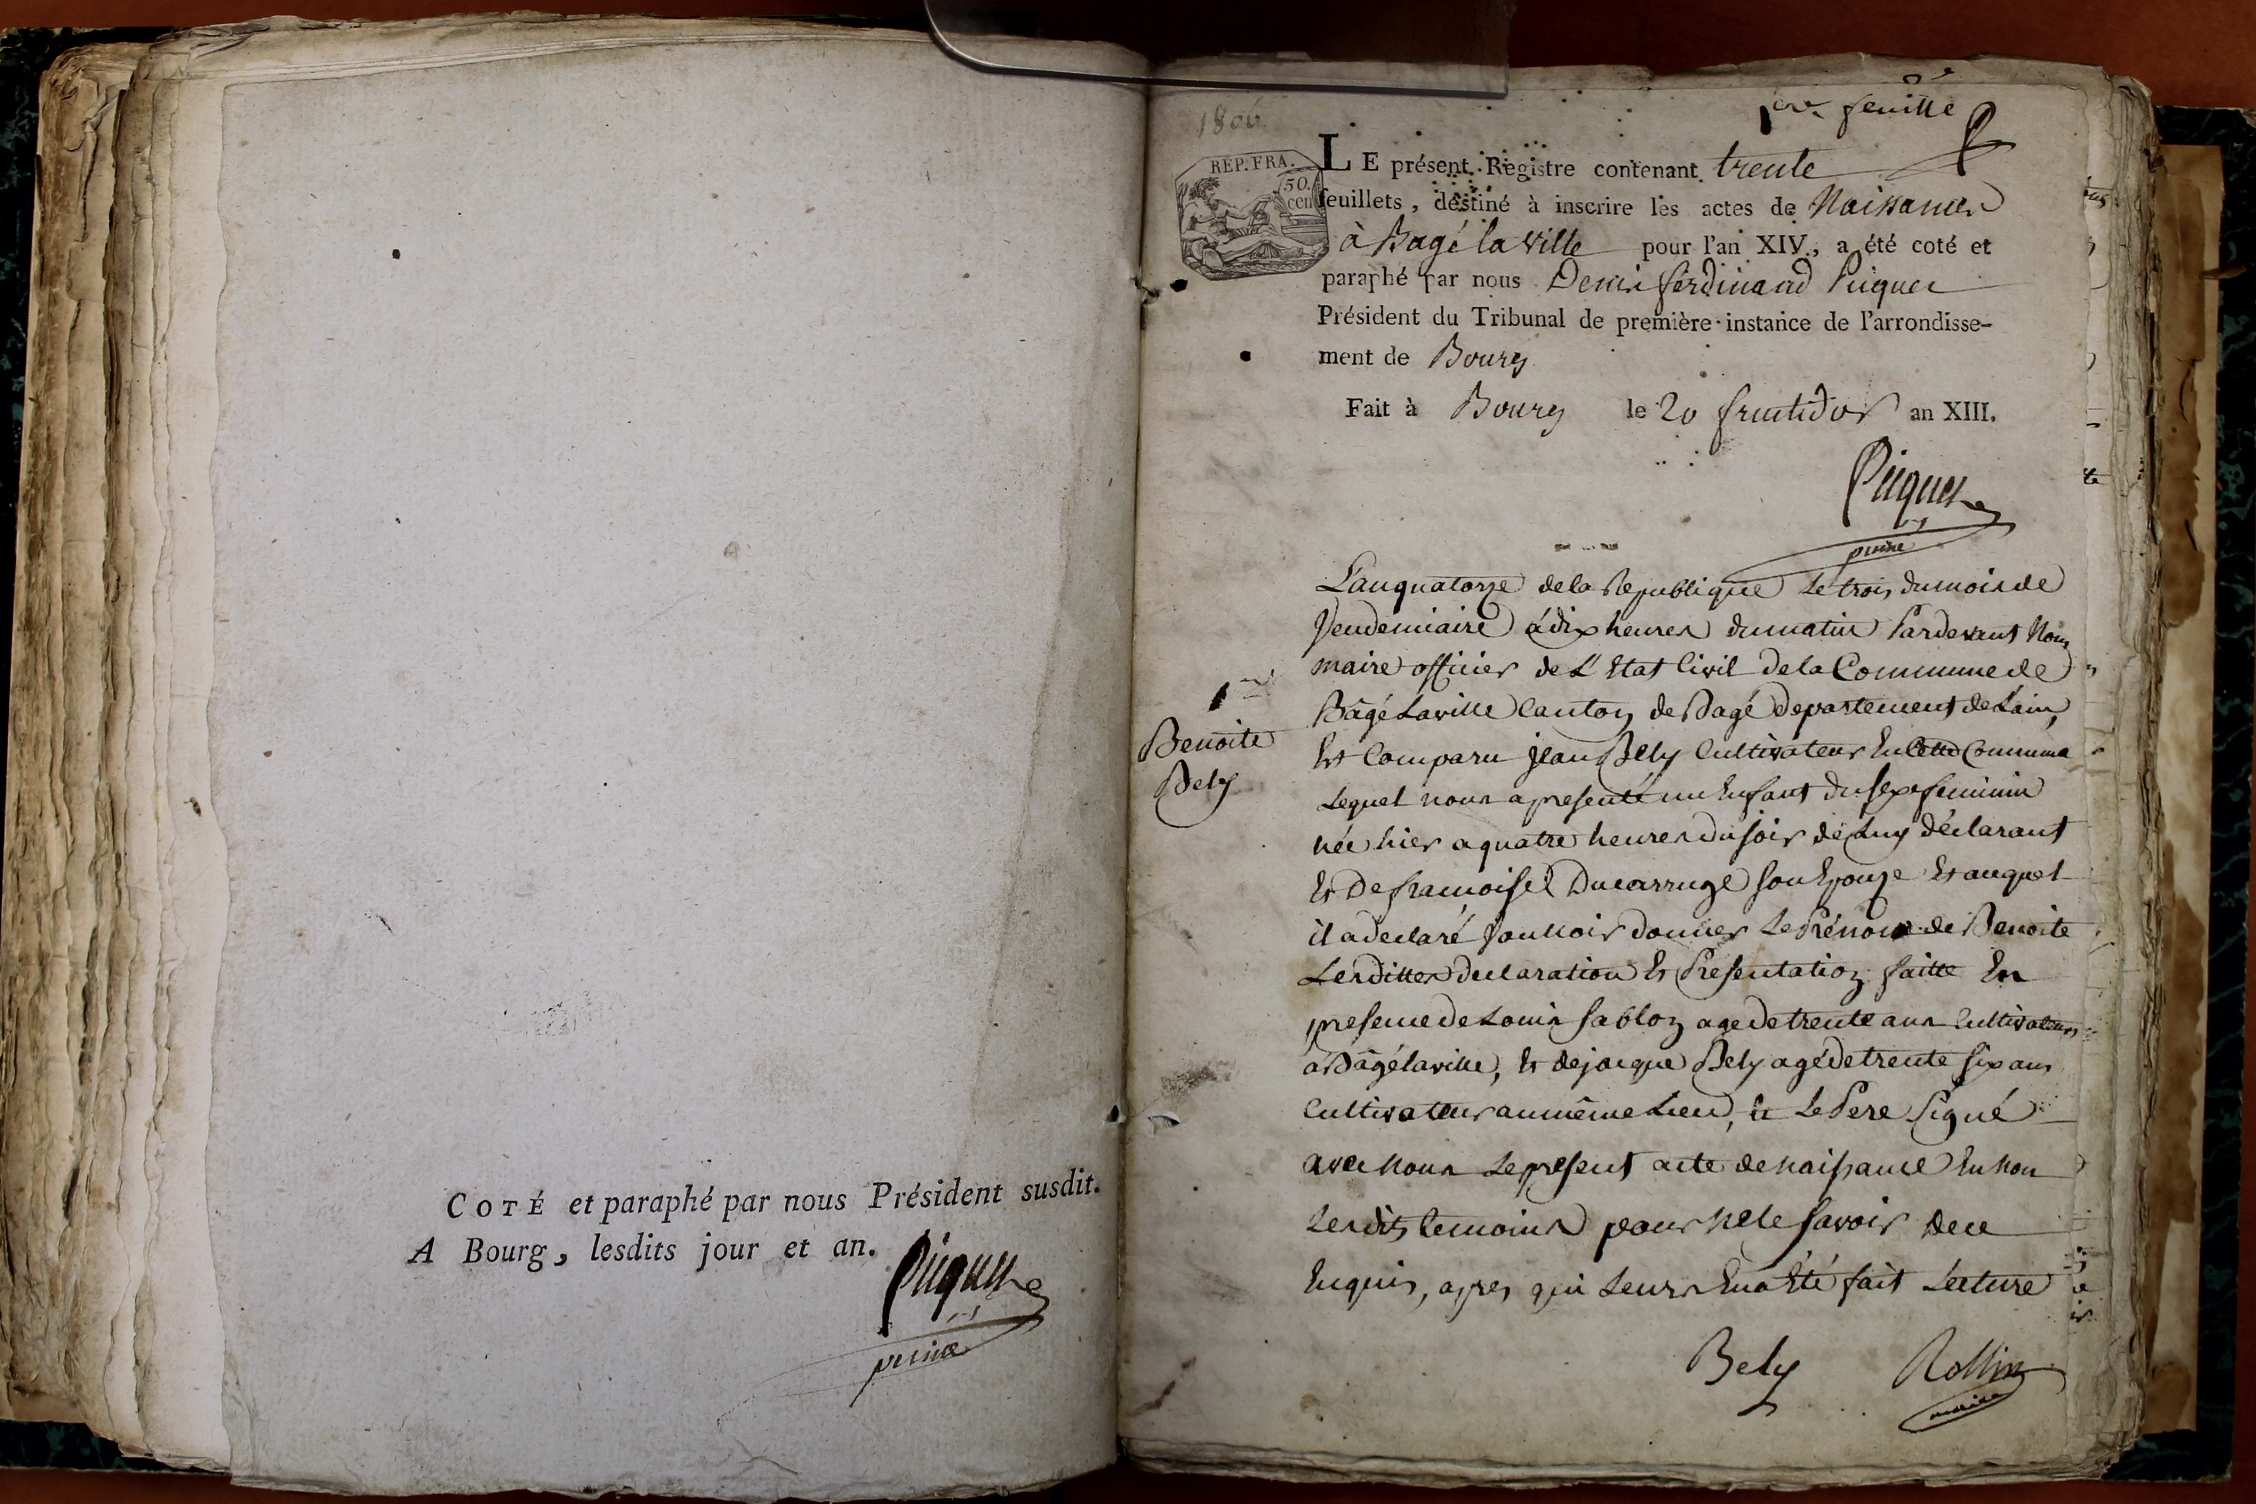 COTÉ et paraphé par nous Président susdit.
A Bourg, lesdits jour et an.
Picquet
1806.
1re feuille
REP. FRA.
50.
cen
LE présent Registre contenant trente
feuillets, destiné à inscrire les actes de Naissances
à Bagé la ville pour l'an XIV, a été coté et
paraphé par nous Denis ferdinand Picquet
Président du Tribunal de première instance de l'arrondisse-
ment de Bourg
Fait à Bourg le 20 fructidor an XIII.
Picquet
L'an quatorze de la Republique Le trois du mois de
Vendemiaire à dix heures du matin Pardevant Nous
maire officier de L'Etat Civil de la Commune de
Bâgé Laville Canton de Bagé departement de Lain,
Et Comparu jean Bely Cultivateur En Cette Commune
Lequel nous a presenté un Enfant du sexe feminin
née hier a quatre heures du soir de Luy déclarant
Et De francoise Ducarruge son Epouze Et auquel
il a declaré Vouloir donner Le Prénom de Benoite
Lesdittes declaration Et Presentation faitte En
presence de Louis Sablon age de trente ans Cultivateur
a Bâgé laville, Et de jacque Bely agé de trente six ans
Cultivateur au même Lieu, Et Le Pere Signé
avec Nous Le present acte de naissance En Non
Lesdits temoins pour Ne le savoir de ce
Enquis, apres qui Leurs En a Eté fait Lecture
1re
Benoite
Bely
Bely Rollin
maire